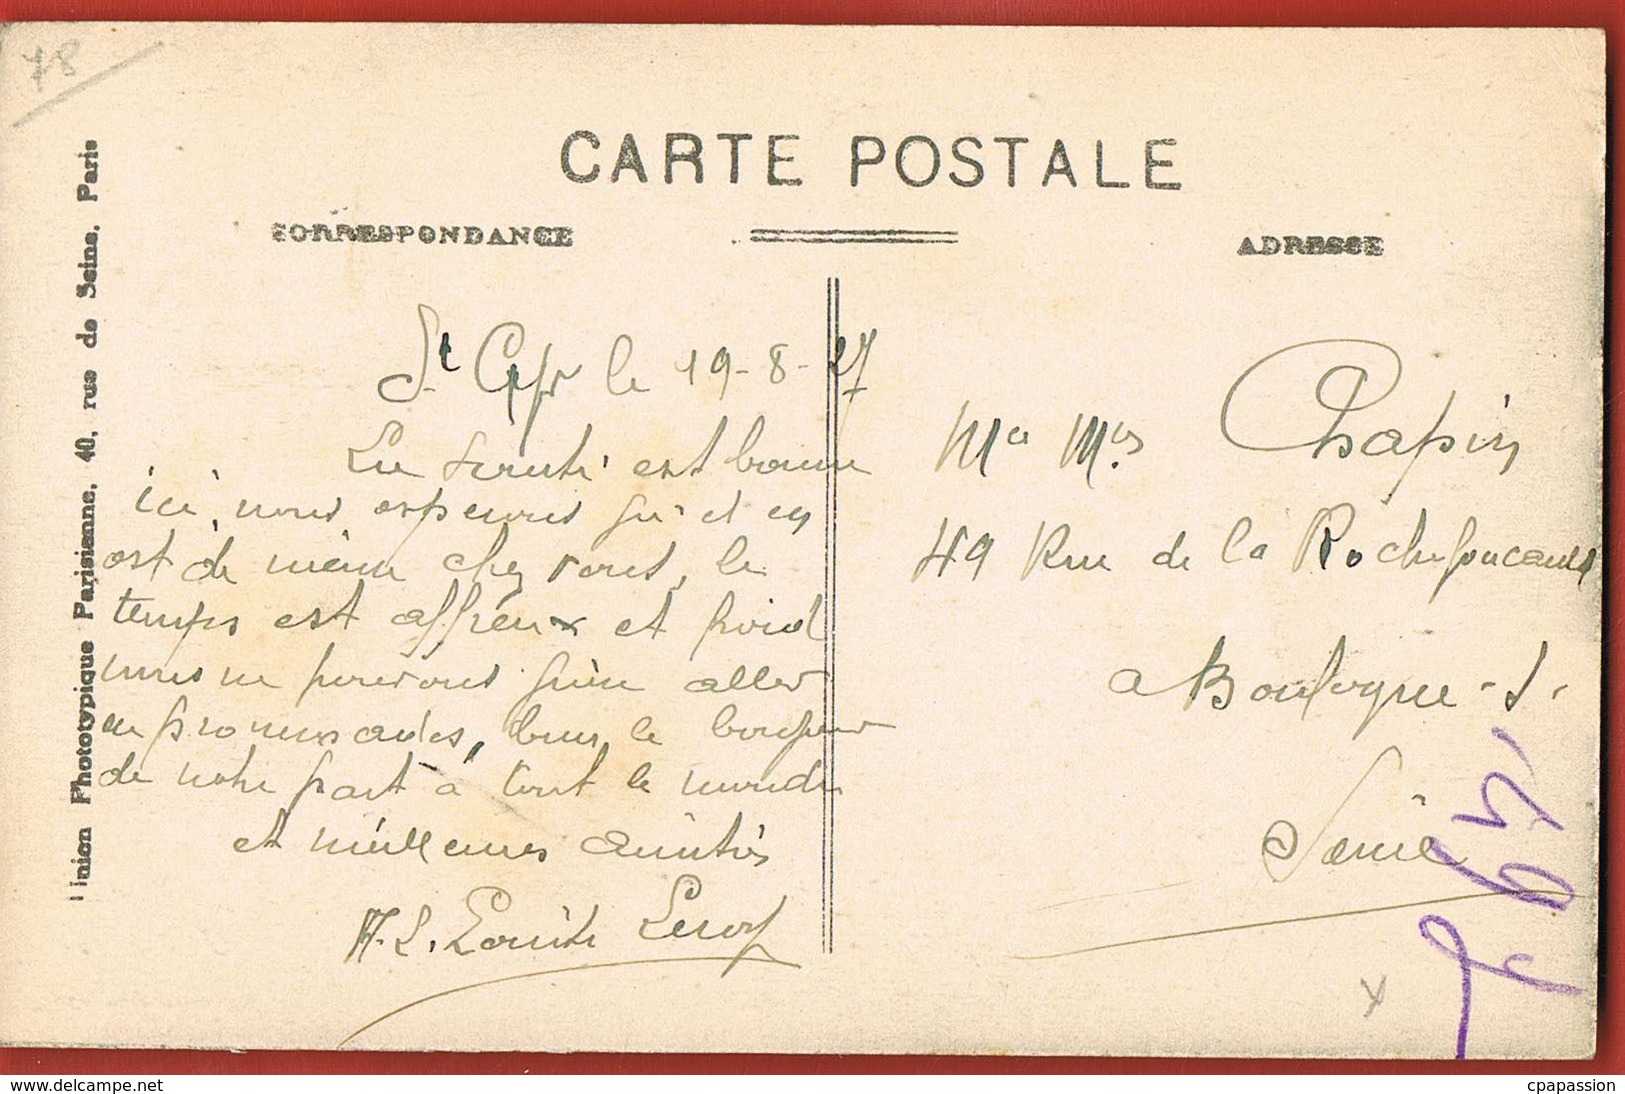 78
CARTE POSTALE
CORRESPONDANCE
ADRESSE
Union Phototypique Parisienne, 40, rue de Seine, Paris
St Cyr le 19-8-27
La santé est bonne
ici, nous espérons qu'il en
est de même chez vous, le
temps est affreux et froid
nous ne pouvons guère aller
en promenades, bien le bonjour
de notre part à tout le monde
et meilleures amitiés
A. L. Leroy
Chapin
49 Rue de la Rochefoucauld
a Boulogne-s-
Seine
x
www.delcampe.net
cpapassion